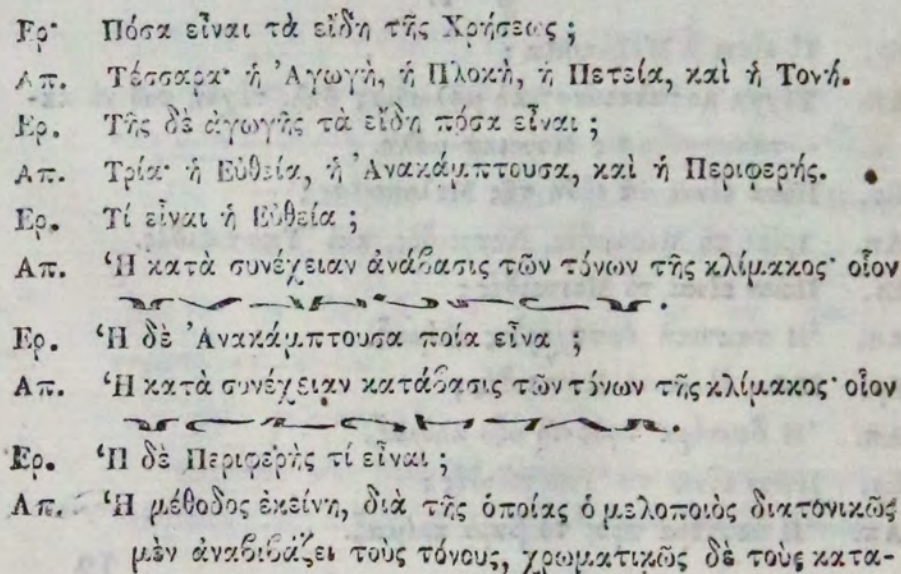 Ερ· Πόσα εἶναι τὰ εἴδη τῆς Χρήσεως ;
Απ. Τέσσαρα· ἡ Ἀγωγὴ, ἡ Πλοκὴ, ἡ Πετεία, καὶ ἡ Τονή.
Ερ. Τῆς δὲ ἀγωγῆς τὰ εἴδη πόσα εἶναι ;
Απ. Τρία· ἡ Εὐθεία, ἡ Ἀνακάμπτουσα, καὶ ἡ Περιφερής.
Ερ. Τί εἶναι ἡ Εὐθεία ;
Απ. Ἡ κατὰ συνέχειαν ἀνάβασις τῶν τόνων τῆς κλίμακος· οἷον
Ερ. Ἡ δὲ Ἀνακάμπτουσα ποία εἶνα ;
Απ. Ἡ κατὰ συνέχειαν κατάβασις τῶν τόνων τῆς κλίμακος· οἷον
Ερ. Ἡ δὲ Περιφερὴς τί εἶναι ;
Απ. Ἡ μέθοδος ἐκείνη, διὰ τῆς ὁποίας ὁ μελοποιὸς διατονικῶς
μὲν ἀναβιβάζει τοὺς τόνους, χρωματικῶς δὲ τοὺς κατα-